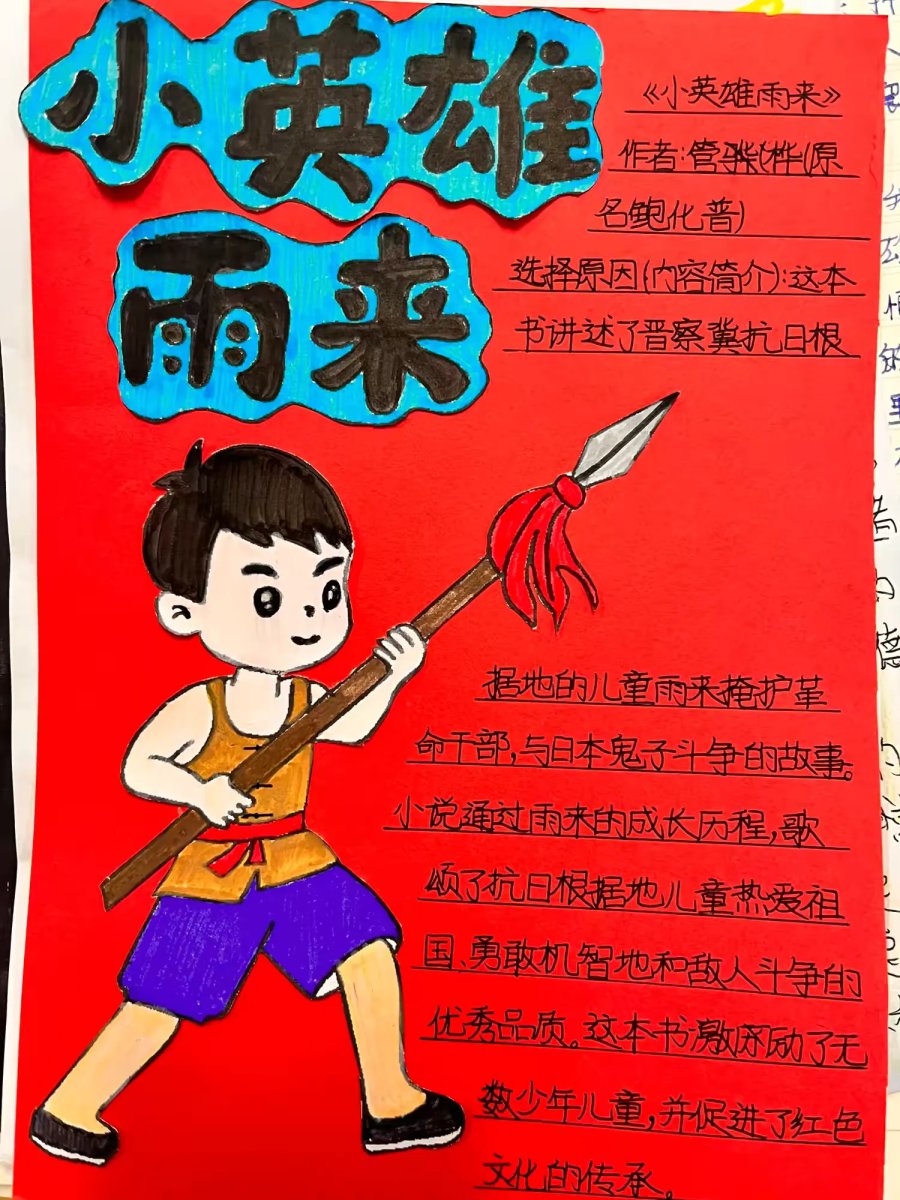 小英雄
雨来
《小英雄雨来》
作者:管骅桦(原
名鲍化普)
选择原因(内容简介):这本
书讲述了晋察冀抗日根
据地的儿童雨来掩护革
命干部,与日本鬼子斗争的故事。
小说通过雨来的成长历程,歌
颂了抗日根据地儿童热爱祖
国、勇敢机智地和敌人斗争的
优秀品质。这本书激励了无
数少年儿童,并促进了红色
文化的传承。